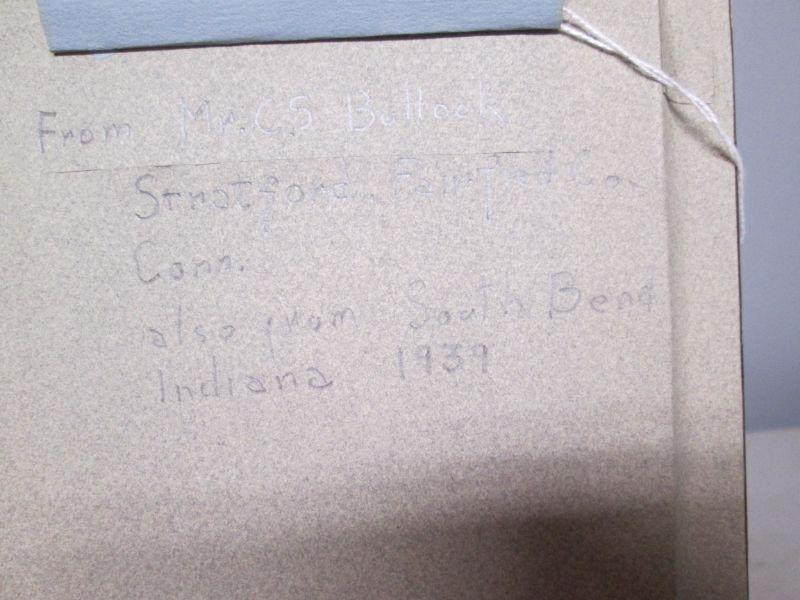 From Mr. C.S Bullock
Stratford. Fairfield Co.
Conn.
also from South Bend
Indiana 1939